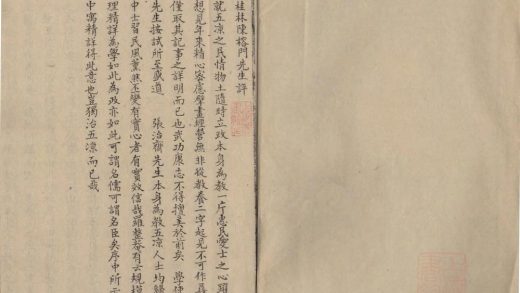 桂林陳榕門先生評
就五凉之民情物土隨時立政本身為教一片惠民愛士之心
想見年來精心密慮擘畫經營無非從教養二字起見不可作
僅取其記事之詳明而已也武功康志不得擅美於前矣 學使
先生按試所至盛道 張治齋先生本身為教五凉人士均
中士習民風薰然丕變有實心者有實效信哉羅整菴有云規模
理精詳為學如此為政亦如此可謂名儒可謂名臣矣序中所云
中寓精詳得此意也豈獨治五凉而已哉